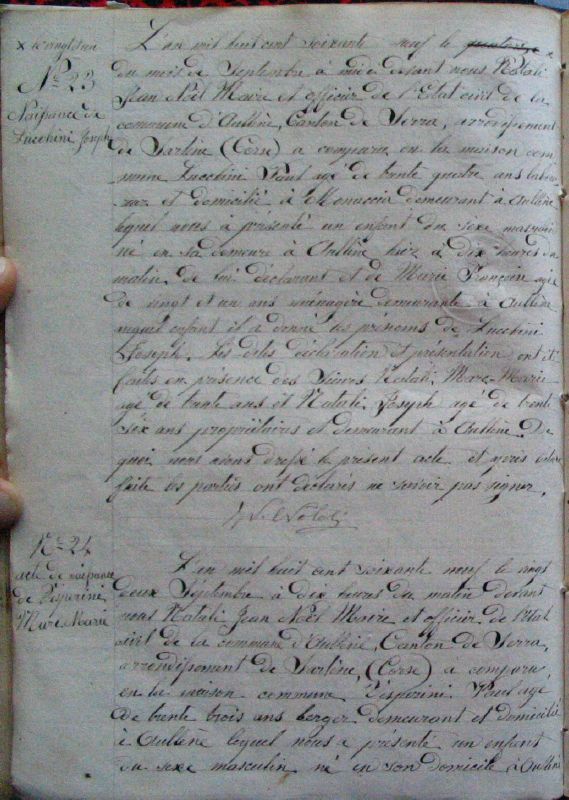 x le vingt un
N° 23
Naissance de
Lucchini Joseph
L'an mil huit cent soixante neuf le quatorze x
du mois de Septembre à midi devant nous Natali
Jean Noël Maire et officier de l'Etat civil de la
commune d'Aullène, Canton de Serra, arrondissement
de Sartène (Corse) a comparu en la maison com
mune Lucchini Paul agé de trente quatre ans labou
reur et domicilié à Monaccia demeurant à Aullène
lequel nous à présenté un enfant du sexe masculin
né en sa demeure à Aullène hier à dix heures du
matin de lui déclarant et de Marie Françoise agée
de vingt et un ans ménagère demeurante à Aullène
auquel enfant il a donné les prénoms de Lucchini
Joseph. Les dites déclaration et présentation ont été
faites en présence des Sieurs Natali, Marc-Marie
agé de trente ans et Natali Joseph agé de trente
six ans propriétaires et demeurant à Aullène. De
quoi nous avons dressé le présent acte et après lecture
faite les parties ont déclarés ne savoir pas signer.
N° 24
acte de naissance
de Pisperini
Marc Marie
L'an mil huit cent soixante neuf le vingt
deux Septembre à dix heures du matin devant
nous Natali Jean Noël Maire et officier de l'état
civil de la commune d'Aullène, Canton de Serra,
arrondissement de Sartène, (Corse) à comparu,
en la maison commune Pisperini Paul agé
de trente trois ans berger demeurant et domicilié
à Aullène lequel nous a présenté un enfant
du sexe masculin né en son domicile à Aullène